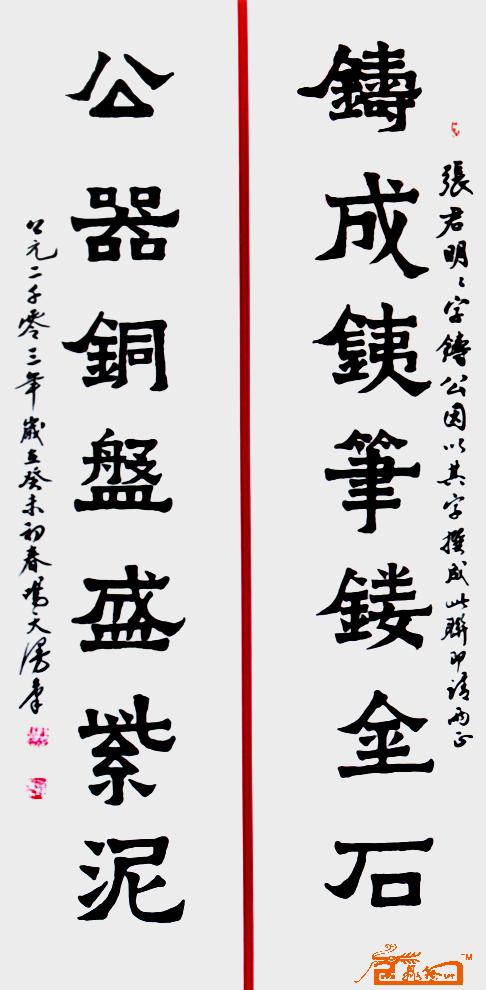 張君明明字鑄公因以其字撰成此聯即請兩正
鑄成鉄筆鏤金石
公器銅盤盛紫泥
公元二千零三年歲在癸未初春楊天